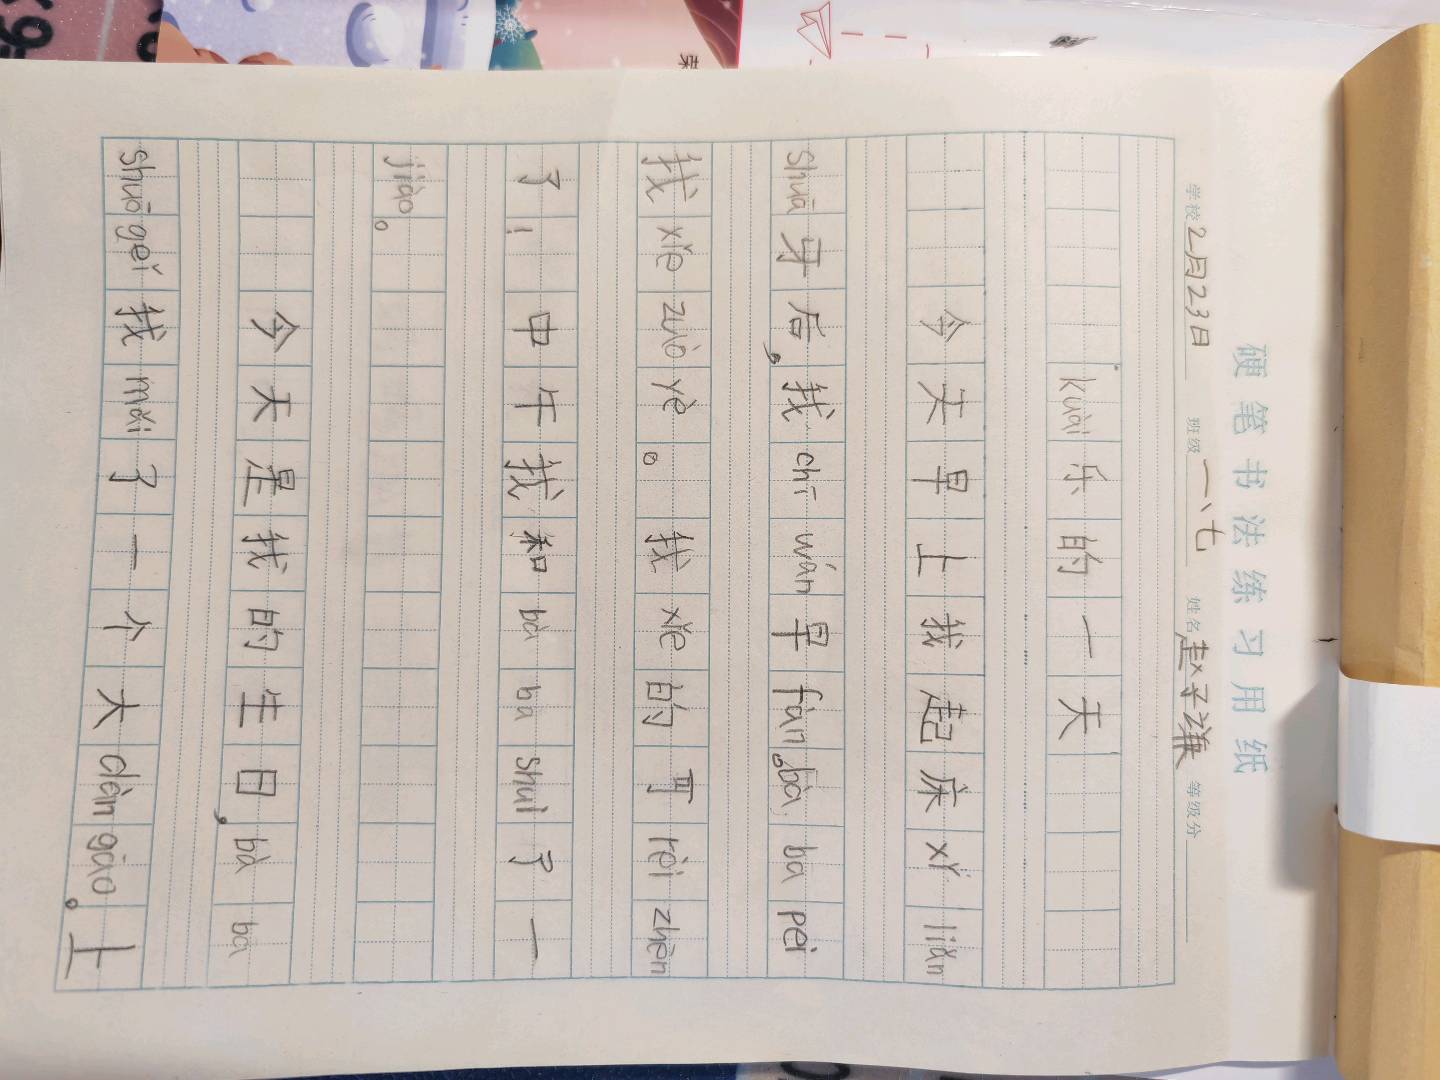 硬笔书法练习用纸
学校 2月23日 班级 一、七 姓名 赵子谦 等级分
kuài 乐的一天
今天早上我起床 xǐ liǎn
shuā 牙后，我 chī wán 早 fàn。bà ba péi
我 xiě zuò yè。我 xiě 的可 rèn zhēn
了！中午我和 bà ba shuì 了一
jiào。
今天是我的生日，bà ba
shuō gěi 我 mǎi 了一个大 dàn gāo。上